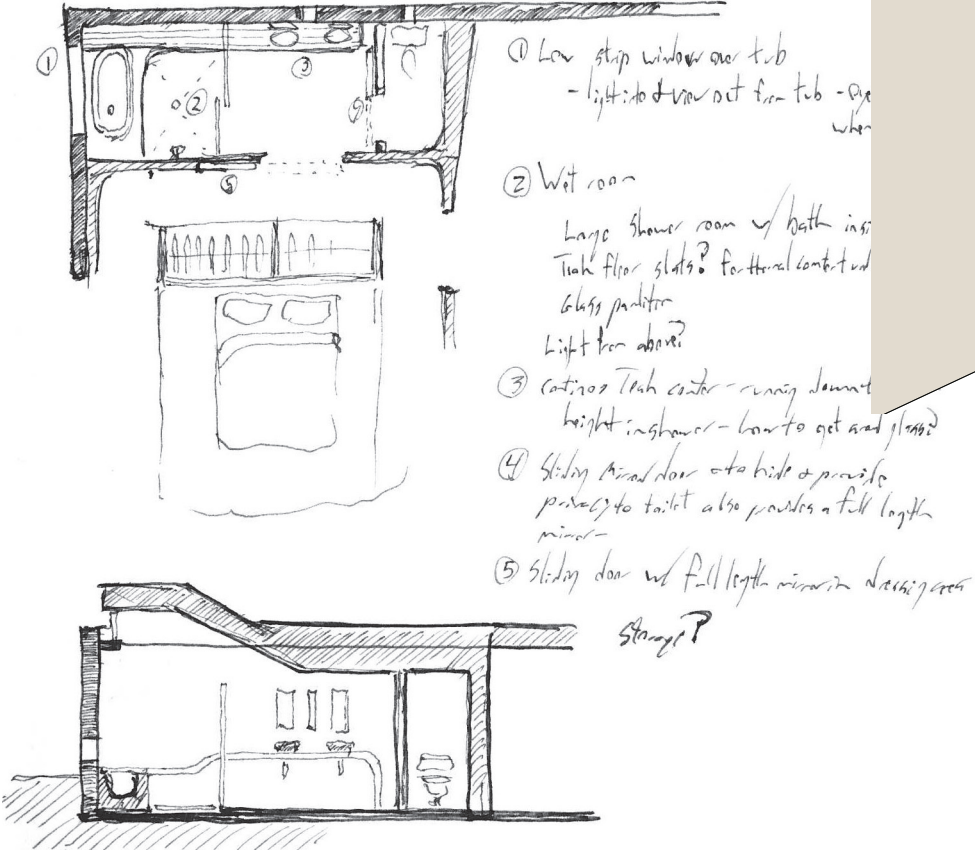 ① Low strip window over tub
- light into & view out from tub - eye
when
② Wet room
Large shower room w/ bath insi
Teak floor slats? for thermal comfort
Glass partition
Light from above?
③ Teak counter - running down
height in shower - how to get around glass?
④ Sliding mirror door to hide & provide
privacy to toilet also provides a full length
mirror -
⑤ Sliding door w/ full length mirror in dressing area
Storage?
①
②
③
⑤